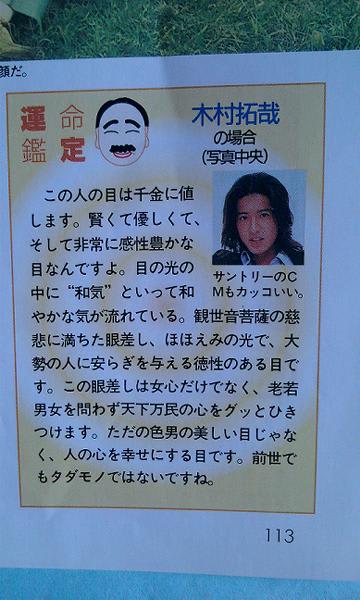 顔だ。
運命
鑑定
木村拓哉
の場合
(写真中央)
この人の目は千金に値
します。賢くて優しくて、
そして非常に感性豊かな
目なんですよ。目の光の
中に“和気”といって和
やかな気が流れている。観世音菩薩の慈
悲に満ちた眼差し、ほほえみの光で、大
勢の人に安らぎを与える徳性のある目で
す。この眼差しは女心だけでなく、老若
男女を問わず天下万民の心をグッとひき
つけます。ただの色男の美しい目じゃな
く、人の心を幸せにする目です。前世で
もタダモノではないですね。
サントリーのC
Mもカッコいい。
113